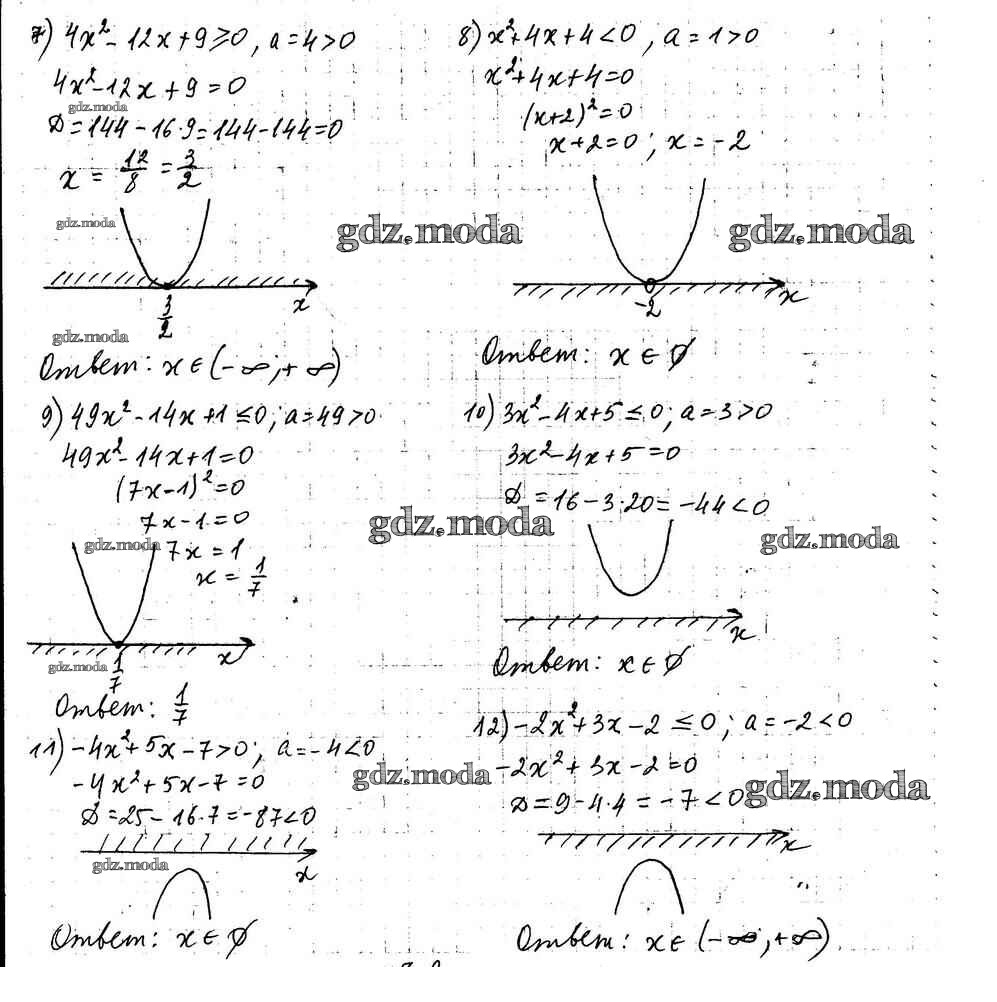 7) 4x² - 12x + 9 ≥ 0, a = 4 > 0
4x² - 12x + 9 = 0
gdz.moda
D = 144 - 16·9 = 144 - 144 = 0
x = 12/8 = 3/2
gdz.moda
gdz.moda
x
3/2
gdz.moda
Ответ: x ∈ (-∞; +∞)
8) x² + 4x + 4 < 0, a = 1 > 0
x² + 4x + 4 = 0
(x+2)² = 0
x + 2 = 0; x = -2
gdz.moda
-2
x
Ответ: x ∈ ∅
9) 49x² - 14x + 1 ≤ 0; a = 49 > 0
49x² - 14x + 1 = 0
(7x - 1)² = 0
7x - 1 = 0
gdz.moda
gdz.moda
7x = 1
x = 1/7
x
gdz.moda
1/7
Ответ: 1/7
10) 3x² - 4x + 5 ≤ 0; a = 3 > 0
3x² - 4x + 5 = 0
D = 16 - 3·20 = -44 < 0
gdz.moda
x
Ответ: x ∈ ∅
11) -4x² + 5x - 7 > 0; a = -4 < 0
-4x² + 5x - 7 = 0
gdz.moda
D = 25 - 16·7 = -87 < 0
gdz.moda
x
Ответ: x ∈ ∅
12) -2x² + 3x - 2 ≤ 0; a = -2 < 0
-2x² + 3x - 2 = 0
D = 9 - 4·4 = -7 < 0
gdz.moda
x
Ответ: x ∈ (-∞; +∞)